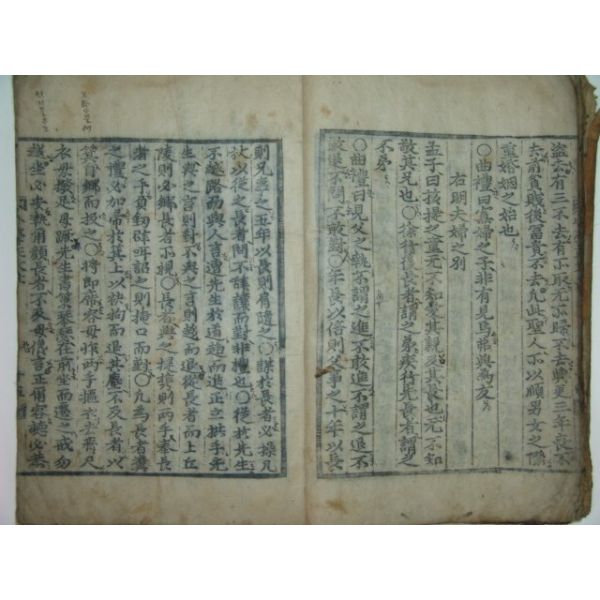 盗去有三不去有所取无所歸不去與更三年喪不
去前貧賤後富貴不去凡此聖人所以順男女之際
重婚姻之始也
○曲禮曰寡婦之子非有見焉弗與爲友
右明夫婦之別
孟子曰孩提之童无不知愛其親及其長也无不知
敬其兄也○徐行後長者謂之弟疾行先長者謂之
不弟
○曲禮曰見父之執不謂之進不敢進不謂之退不
敢退不問不敢對○年長以倍則父事之十年以長
則兄事之五年以長則肩隨之○謀於長者必操几
杖以從之長者問不辭讓而對非禮也○從於先生
不越路而與人言遭先生於道趨而進正立拱手先
生與之言則對不與之言則趨而退從長者而上丘
陵則必鄕長者所視○長者與之提携則兩手奉長
者之手負劒辟咡詔之則掩口而對○凡爲長者糞
之禮必加帚於箕上以袂拘而退其塵不及長者以
箕自鄕而扱之○將卽席容毋怍兩手摳衣去齊尺
衣毋撥足毋蹶先生書策琴瑟在前坐而遷之戒勿
越坐必安執爾顔長者不及毋儳言正爾容聽必恭